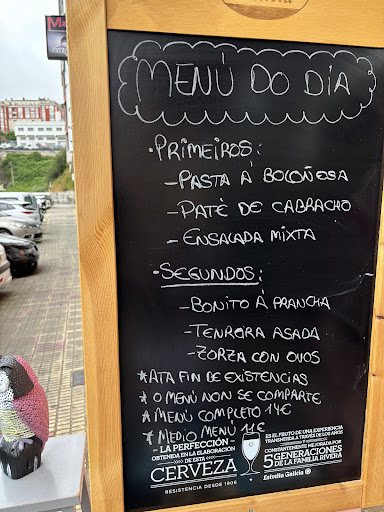 MENÚ DO DÍA
• PRIMEIROS:
- PASTA Á BOLOÑESA
- PATÉ DE CABRACHO
- ENSALADA MIXTA
• SEGUNDOS:
- BONITO Á PRANCHA
- TENRORA ASADA
- ZORZA CON OVOS
* ATA FIN DE EXISTENCIAS
* O MENÚ NON SE COMPARTE
* MENÚ COMPLETO 14€
* MEDIO MENÚ 11€
- LA PERFECCIÓN -
OBTENIDA EN LA ELABORACIÓN
DE ESTA
CERVEZA
RESISTENCIA DESDE 1906
ES EL FRUTO DE UNA EXPERIENCIA
TRANSMITIDA A TRAVÉS DE LOS AÑOS
Y
CONSTANTEMENTE MEJORADA POR
5 GENERACIONES
DE LA FAMILIA RIVERA
Estrella Galicia